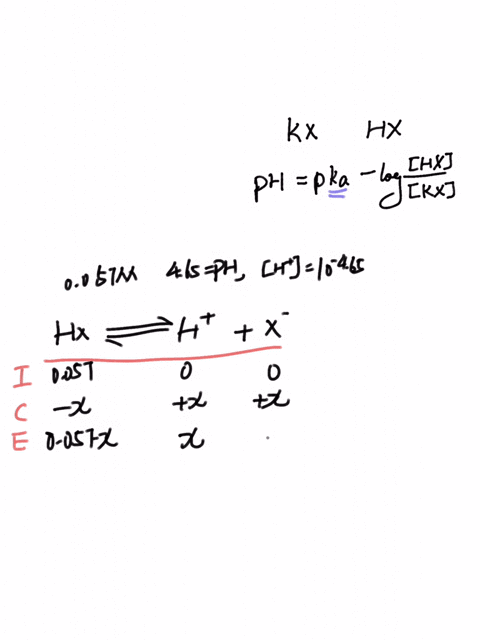 KX HX
pH = pka - log [HX]/[KX]
0.057M 4.65=PH, [H⁺]=10^-4.65
Hx ⇌ H⁺ + X⁻
I 0.057 0 0
C -x +x +x
E 0.057-x x